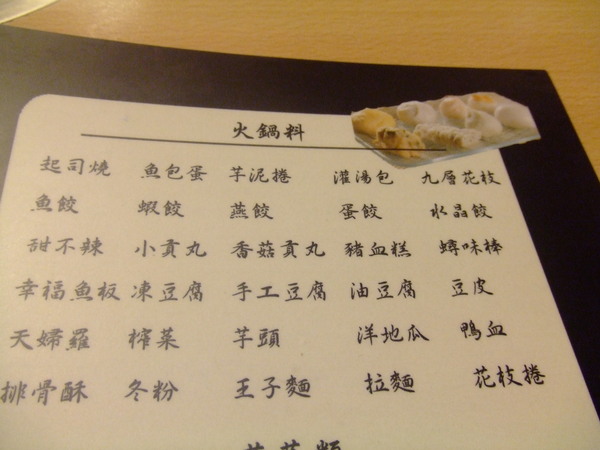 火鍋料
起司燒 魚包蛋 芋泥捲 灌湯包 九層花枝
魚餃 蝦餃 燕餃 蛋餃 水晶餃
甜不辣 小貢丸 香菇貢丸 豬血糕 蟳味棒
幸福魚板 凍豆腐 手工豆腐 油豆腐 豆皮
天婦羅 榨菜 芋頭 洋地瓜 鴨血
排骨酥 冬粉 王子麵 拉麵 花枝捲